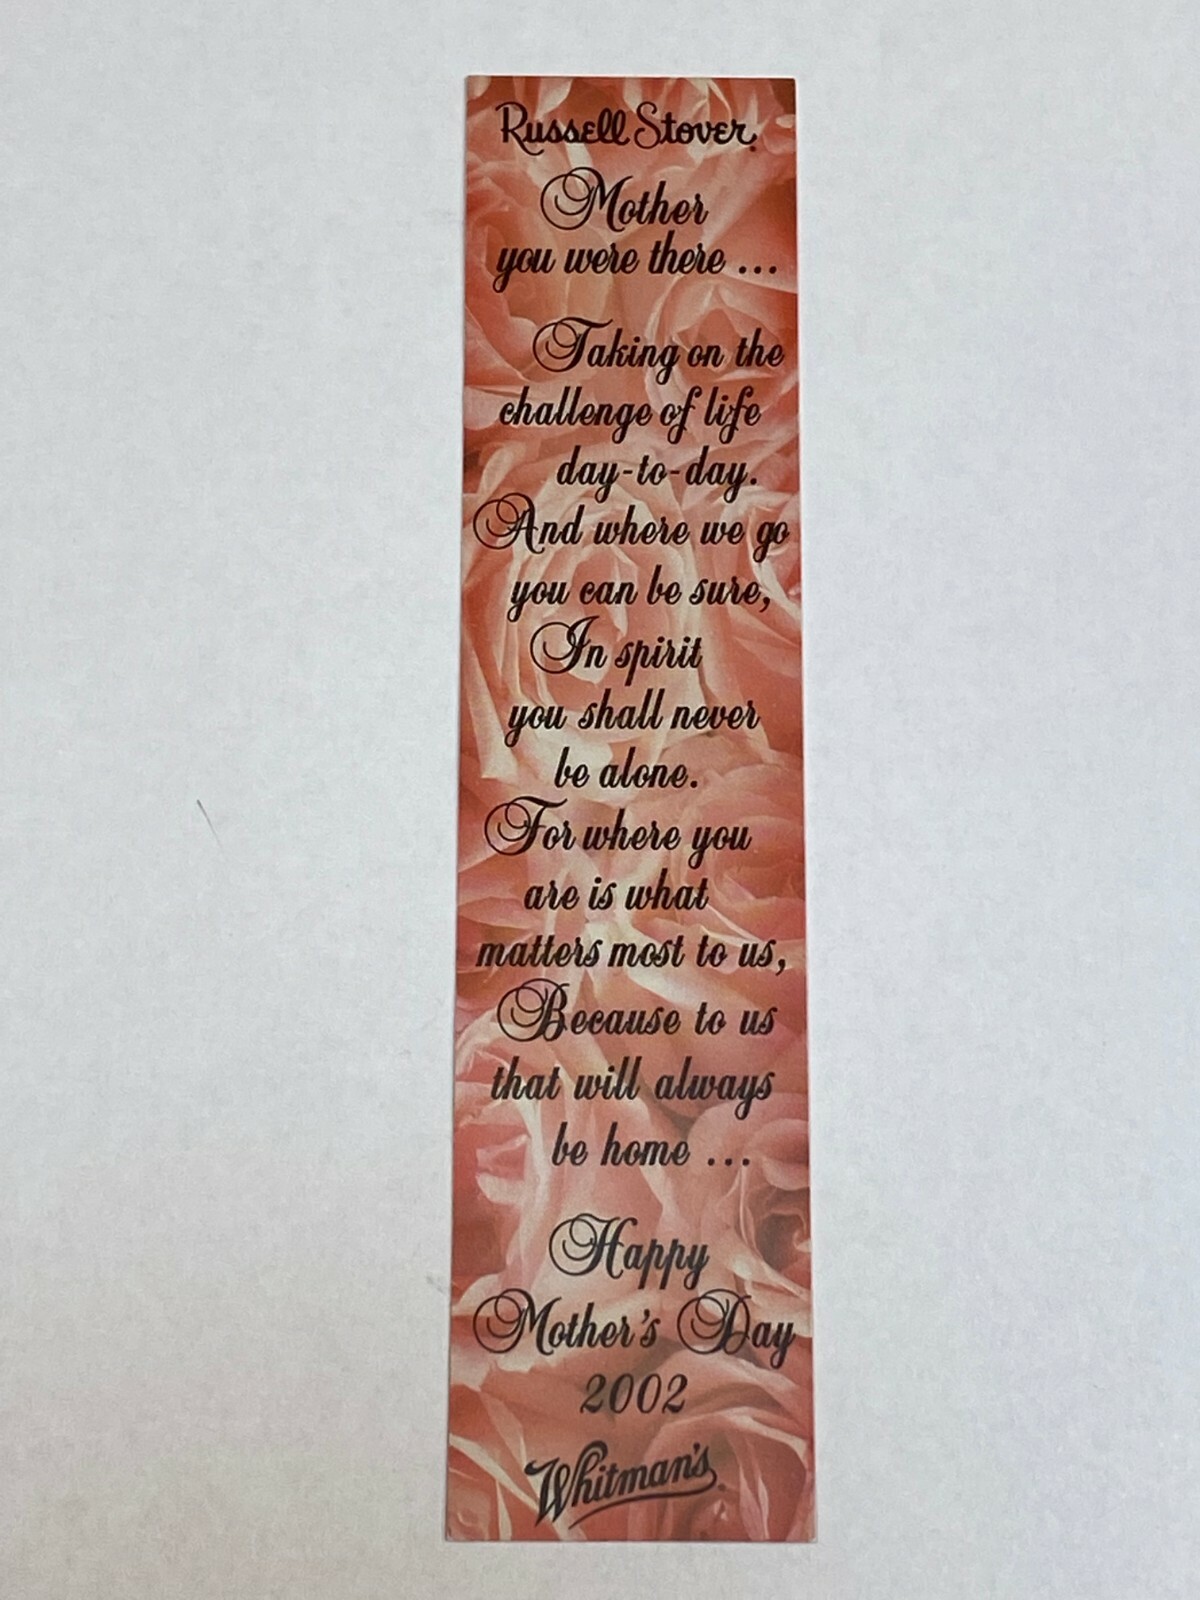 Russell Stover
Mother
you were there ...
Taking on the
challenge of life
day-to-day.
And where we go
you can be sure,
In spirit
you shall never
be alone.
For where you
are is what
matters most to us,
Because to us
that will always
be home ...
Happy
Mother's Day
2002
Whitman's